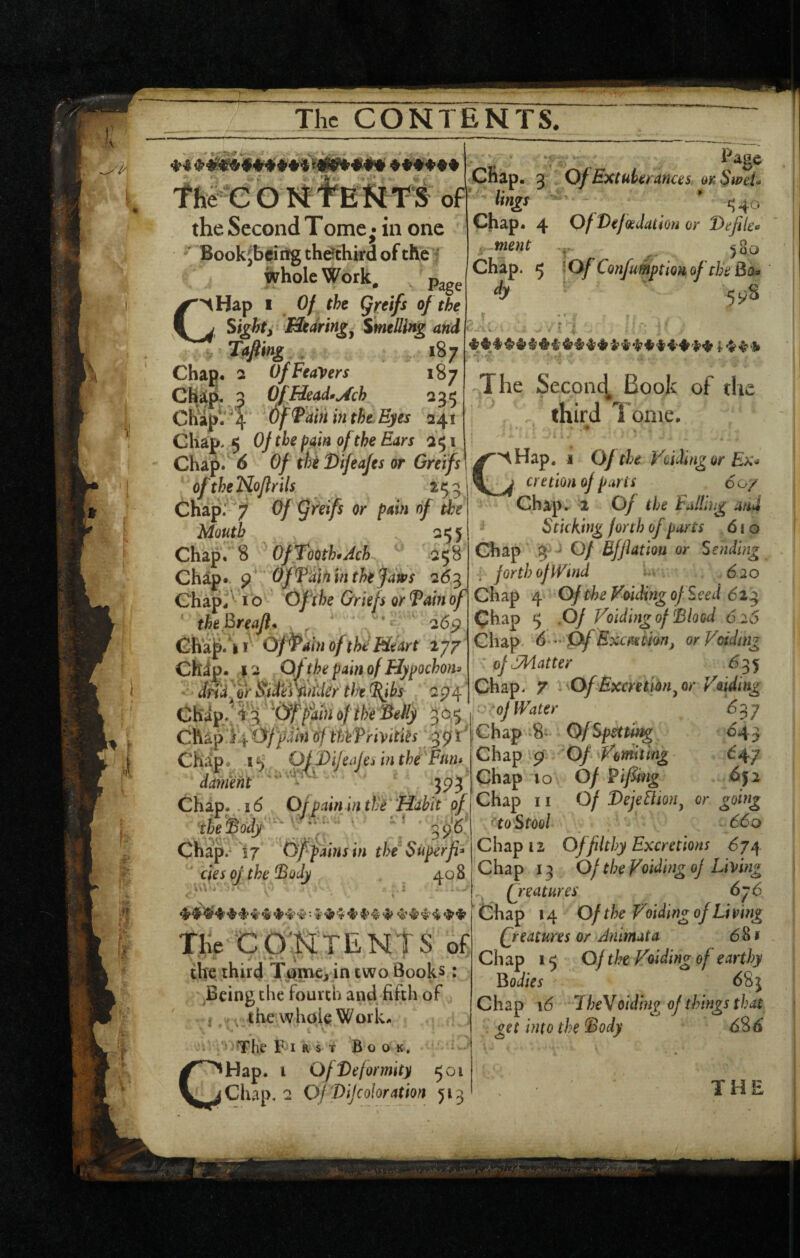 The CONTENTS.
The CONTENTS of
the Second Tome; in one
Book, being the third of the
whole Work.
Page
CHap 1 Of the Greifs of the
Sight, Hearing, Smelling and
Tasting 187
Chap. 2 Of Feavers 187
Chap. 3 Of Head-Ach 235
Chap. 4 Of Pain in the Eyes 241
Chap. 5 Of the pain of the Ears 251
Chap. 6 Of the Diseases or Greifs
of the Nostrils 253
Chap. 7 Of Greifs or pain of the
Mouth 255
Chap. 8 Of Tooth-Ach 258
Chap. 9 Of Pain in the Jaws 263
Chap. 10 Of the Griefs or Pain of
the Breast. 269
Chap. 11 Of Pain of the Heart 277
Chap. 12 Of the pain of Hypochon-
dria, or Sides under the Ribs 294
Chap. 13 Of pain of the Belly 305
Chap 14 Of pain of the Privities 391
Chap. 15 Of Diseases in the Fun-
dament 393
Chap. 16 Of pain in the Habit of
the Body 396
Chap. 17 Of pains in the Superfi-
cies of the Body 408
The CONTENTS of
the third Tome, in two Books :
Being the fourth and fifth of
the whole Work.
The FIRST BOOK.
CHap. 1 Of Deformity 501
Chap. 2 Of Discoloration 513
Page
Chap. 3 Of Extuberances or Swel-
lings 540
Chap. 4 Of Defœdation or Defile-
ment 580
Chap. 5 Of Consumption of the Bo-
dy 598
The Second Book of the
third Tome.
CHap. 1 Of the Voiding or Ex-
cretion of parts 607
Chap. 2 Of the Falling and
Sticking forth of parts 610
Chap 3 Of Efflation or Sending
forth of Wind 620
Chap 4 Of the Voiding of Seed 623
Chap 5 Of Voiding of Blood 626
Chap 6 Of Excretion, or Voiding
of Matter 635
Chap. 7 Of Excretion, or Voiding
of Water 637
Chap 8 Of Spetting 643
Chap 9 Of Vomiting 647
Chap 10 Of Pissing 652
Chap 11 Of Dejection, or going
to Stool 660
Chap 12 Of filthy Excretions 674
Chap 13 Of the Voiding of Living
Creatures 676
Chap 14 Of the Voiding of Living
Creatures or Animata 681
Chap 15 Of the Voiding of earthy
Bodies 683
Chap 16 The Voiding of things that
get into the Body 686
THE